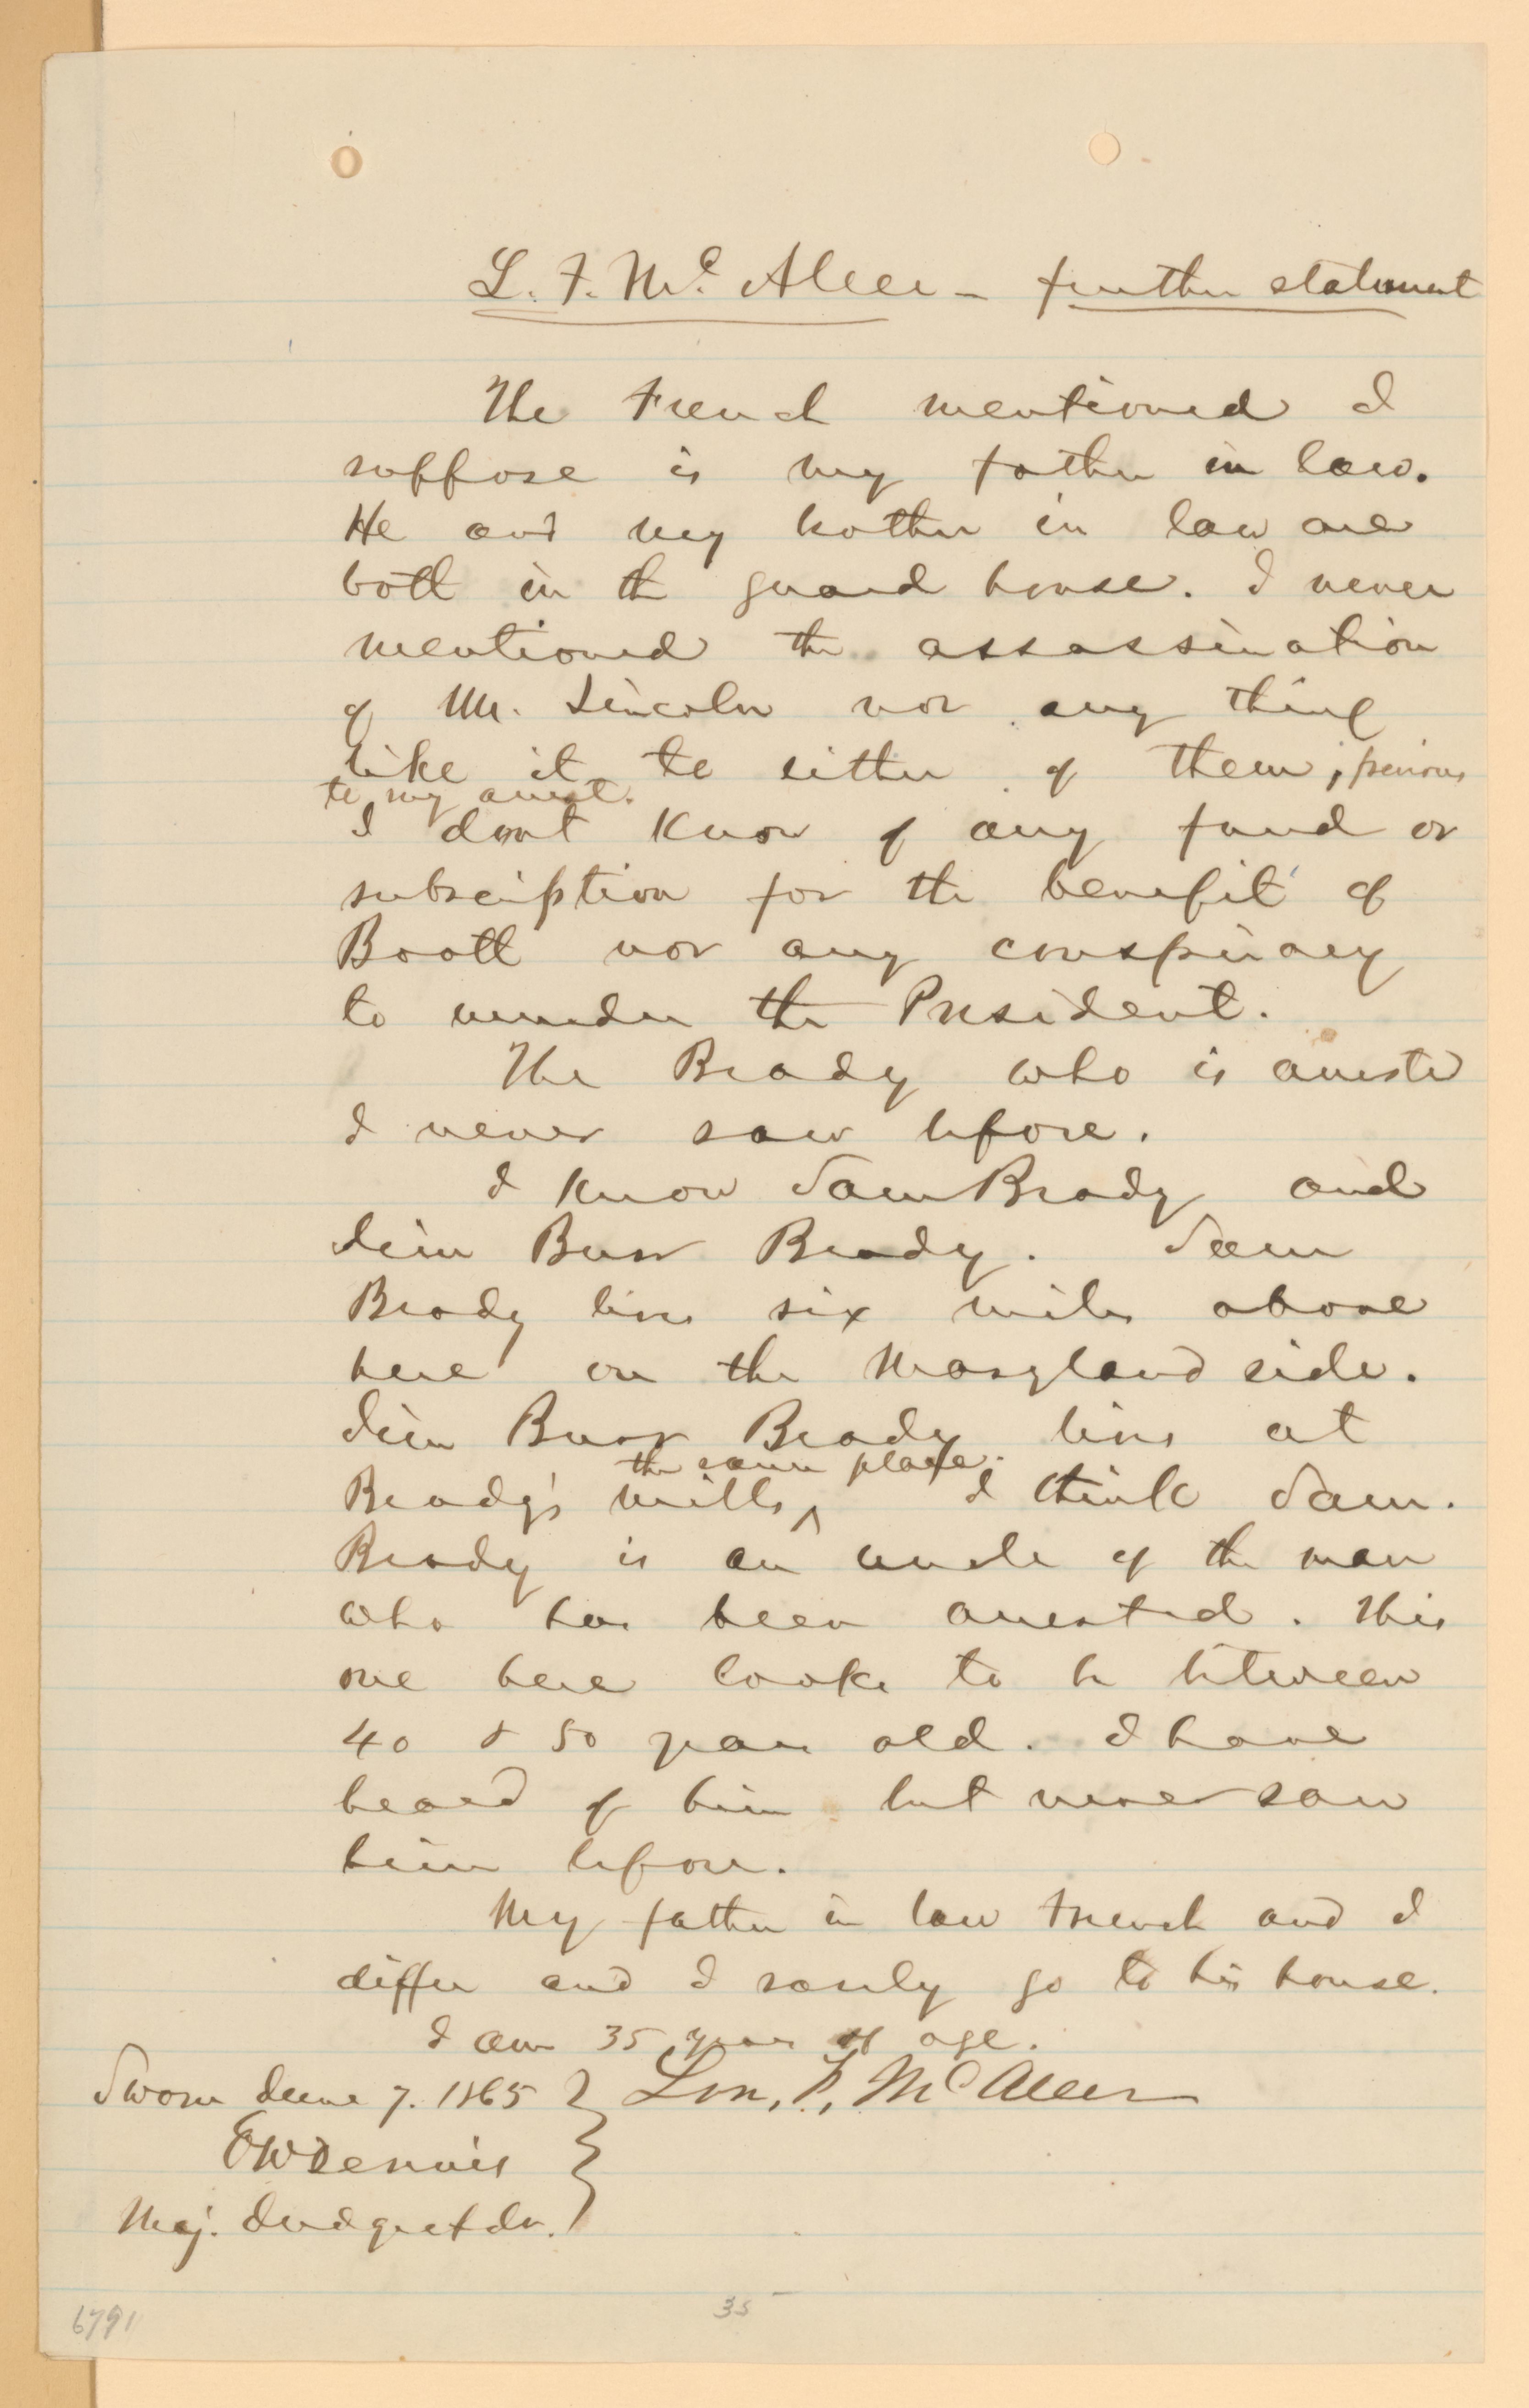 L. F. Mc Aleer - further statement
The French mentioned I
suppose is my father in law.
He and my brother in law are
both in the guard house. I never
mentioned the assassination
of Mr. Lincoln nor any thing
like it to either of them, previous
to my arrest.
I dont know of any fund or
subscription for the benefit of
Booth nor any conspiracy
to murder the President.
The Brady who is arrested
I never saw before.
I know Sam Brady and
Jim Burr Brady. Sam
Brady lives six miles above
here on the Maryland side.
Jim Burr Brady lives at
the same place.
Brady's mills, ^ I think Sam.
Brady is an uncle of the man
who has been arrested. This
one here looks to be between
40 & 50 years old. I have
heard of him but never saw
him before.
My father in law French and I
differ and I rarely go to his house.
I am 35 years of age.
Sworn June 7. 1865 } Lon, F, McAleer
EWDennis
Maj. Judge Adv.
35
6791